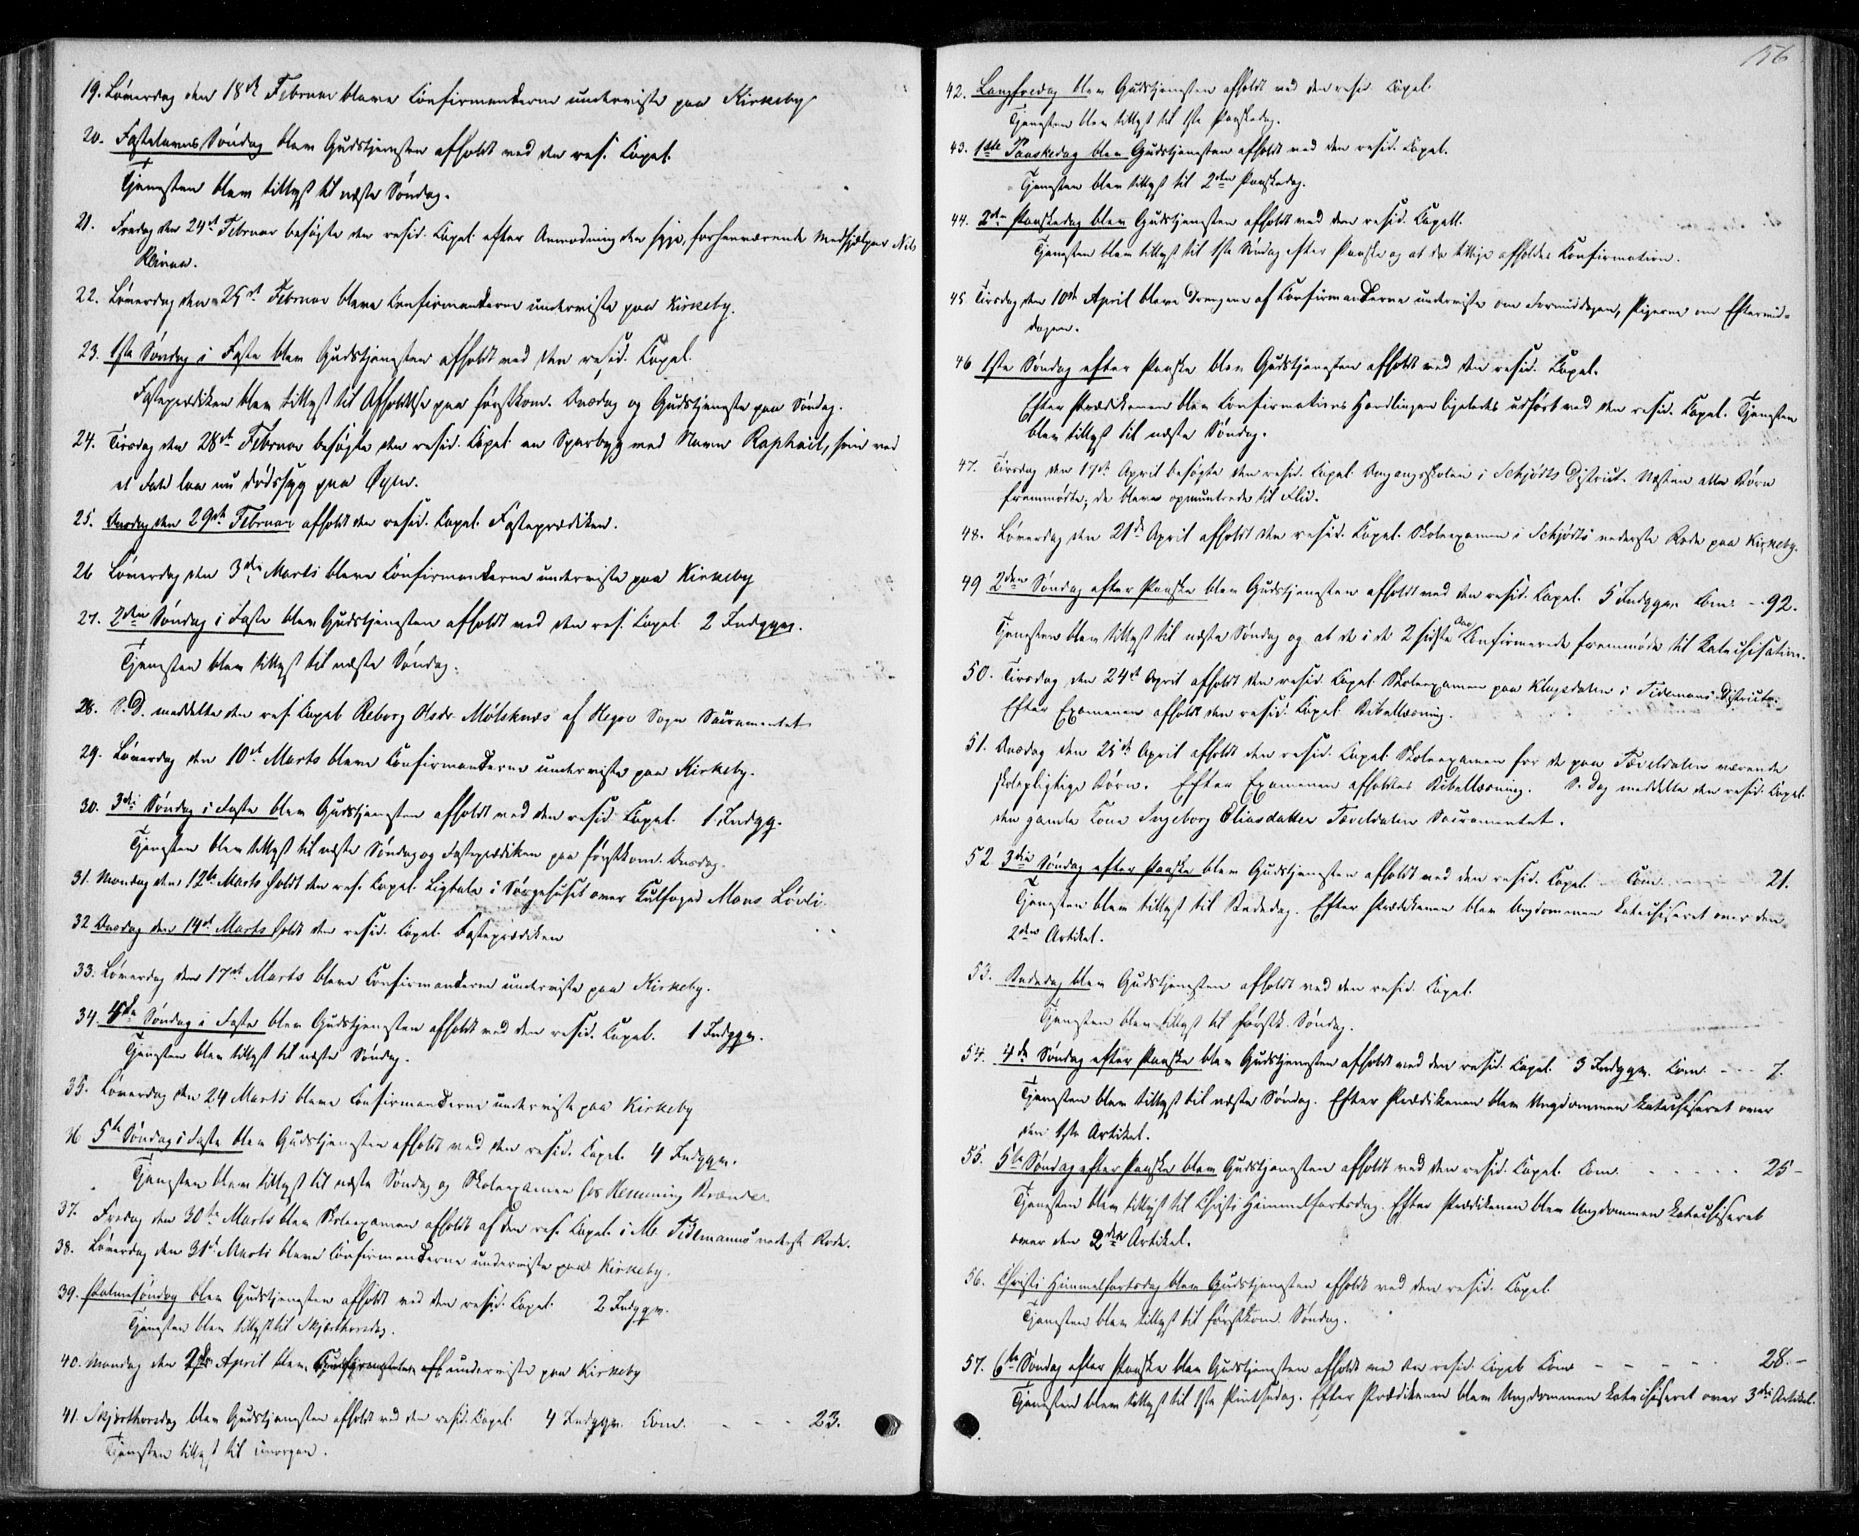 19. Løverdag den 18de Februar bleve Confirmanderne underviste paa Kirkeby
20. Fastelavns Søndag blev Gudstjenesten afholdt ved den res. Capel.
Tjenesten blev tillyst til næste Søndag.
21. Fredag den 24de Februar besøgte den resid. Capel. efter Anmodning den syge, forhenværende Medhjælper Nils
Kleiven.
22. Løverdag den 25de Februar bleve Confirmanderne underviste paa Kirkeby.
23. 1ste Søndag i Faste blev Gudstjenesten afholdt ved den resid. Capel.
Fasteprædiken blev tillyst til Afholdelse paa førstkom. Onsdag og Gudstjeneste paa Søndag.
24. Tirsdag den 28de Februar besøgte den resid. Capel. en Sparbyg ved Navn Raphael, som ved
et Fald laa nu dødssyg paa Øyen.
25. Onsdag den 29de Februar afholdt den resid. Capel. Fasteprædiken.
26 Løverdag den 3die Marts bleve Confirmanderne underviste paa Kirkeby
27. 2den Søndag i Faste blev Gudstjenesten afholdt ved den res. Capel. 2 Indggn.
Tjenesten blev tillyst til næste Søndag.
28. S. D. meddelte den res. Capel. Reborg Olsdr. Mølsknæs af Hegre Sogn Sacramentet
29. Løverdag den 10de Marts bleve Confirmanderne underviste paa Kirkeby.
30. 3die Søndag i Faste blev Gudstjenesten afholdt ved den resid. Capel. 1 Indgg.
Tjenesten blev tillyst til næste Søndag og Fasteprædiken paa førstkom. Onsdag.
31. Mandag den 12te Marts holdt den res. Capel. Ligtale i Sørgehuset over Kulfoged Mons Løvli.
32 Onsdag den 14de Marts holdt den resid. Capel. Fasteprædiken
33. Løverdag den 17de Marts bleve Confirmanderne underviste paa Kirkeby.
34. 4de Søndag i Faste blev Gudstjenesten afholdt ved den resid. Capel. 1 Indggn.
Tjenesten blev tillyst til næste Søndag.
35. Løverdag den 24 Marts bleve Confirmanderne underviste paa Kirkeby
36 5te Søndag i Faste blev Gudstjenesten afholdt ved den resid. Capel. 4 Indggn.
Tjenesten blev tillyst til næste Søndag og Skoleexamen hos Hemming
37. Fredag den 30te Marts blev Skoleexamen afholdt af den res. Capel. i Tidemanns nederste Rode.
38. Løverdag den 31te Marts bleve Confirmanderne underviste paa Kirkeby.
39. Palmesøndag blev Gudstjenesten afholdt ved den resid. Capel. 2 Indggn.
Tjenesten blev tillyst til Skjærthorsdag.
40. Mandag den 2den April blev underviste paa Kirkeby
41. Skjærthorsdag blev Gudstjenesten afholdt ved den resid. Capel. 4 Indggn. Com. - - - 23.
Tjenesten tillyst til imorgen.
156
42. Langfredag blev Gudstjenesten afholdt ved den resid. Capel.
Tjenesten blev tillyst til 1ste Paaskedag.
43. 1ste Paaskedag blev Gudstjenesten afholdt ved den resid. Capel.
Tjenesten blev tillyst til 2den Paaskedag.
44. 2den Paaskedag blev Gudstjenesten afholdt ved den resid. Capell.
Tjenesten blev tillyst til 1ste Søndag efter Paaske og at der tillige afholdes Confirmation.
45 Tirsdag den 10de April bleve Drengene af Confirmanderne underviste om Formiddagen, Pigerne om Eftermid-
dagen.
46 1ste Søndag efter Paaske blev Gudstjenesten afholdt ved den resid. Capel.
Efter Prædikenen blev Confirmations Handlingen ligeledes udført ved den resid. Capel. Tjenesten
blev tillyst til næste Søndag.
47. Tirsdag den 17de April besøgte den resid. Capel. Omgangsskolen i Schjølts District. Næsten alle Børn
fremmødte; de bleve opmuntrede til Flid.
48. Løverdag den 21de April afholdt den resid. Capel. Skoleexamen i Schjølts nederste Rode paa Kirkeby.
49 2den Søndag efter Paaske blev Gudstjenesten afholdt ved den resid. Capel. 5 Indggn. Com. - - 92.
Tjenesten blev tillyst til næste Søndag og at de i de 2 sidste Aar Confirmerede fremmøde til Katechisation.
50. Tirsdag den 24de April afholdt den resid. Capel. Skoleexamen paa Klugsdalen i Tidemans District.
Efter Examenen afholdt den resid. Capel. Bibellæsning.
51. Onsdag den 25de April afholdt den resid. Capel. Skoleexamen for de paa Tæveldalen værende
skolepligtige Børn. Efter Examenen afholdtes Bibellæsning. S. Dag meddelte den resid. Capel.
den gamle Kone Ingeborg Eliasdatter Tæveldalen Sacramentet.
52 3die Søndag efter Paaske blev Gudstjenesten afholdt ved den resid. Capel. Com. - - - 21.
Tjenesten blev tillyst til Bededag. Efter Prædikenen blev Ungdommen katechiseret over den
2den Artikel.
53. Bededag blev Gudstjenesten afholdt ved den resid. Capel.
Tjenesten blev tillyst til førstk. Søndag.
54. 4de Søndag efter Paaske blev Gudstjenesten afholdt ved den resid. Capel. 3 Indggn. Com. - - - 7.
Tjenesten blev tillyst til næste Søndag. Efter Prædikenen blev Ungdommen katechiseret over
den 1ste Artikel.
55. 5te Søndag efter Paaske blev Gudstjenesten afholdt ved den resid. Capel. Com. - - - - - 25 -
Tjenesten blev tillyst til Christi Himmelfartsdag. Efter Prædikenen blev Ungdommen katechiseret
over den 2den Artikel.
56. Christi Himmelfartsdag blev Gudstjenesten afholdt ved den resid. Capel.
Tjenesten blev tillyst til førstkom. Søndag.
57. 6te Søndag efter Paaske blev Gudstjenesten afholdt ved den resid. Capel. Com. - - - - - 28. -
Tjenesten blev tillyst til 1ste Pintsedag. Efter Prædikenen blev Ungdommen katechiseret over 3die Artikel.